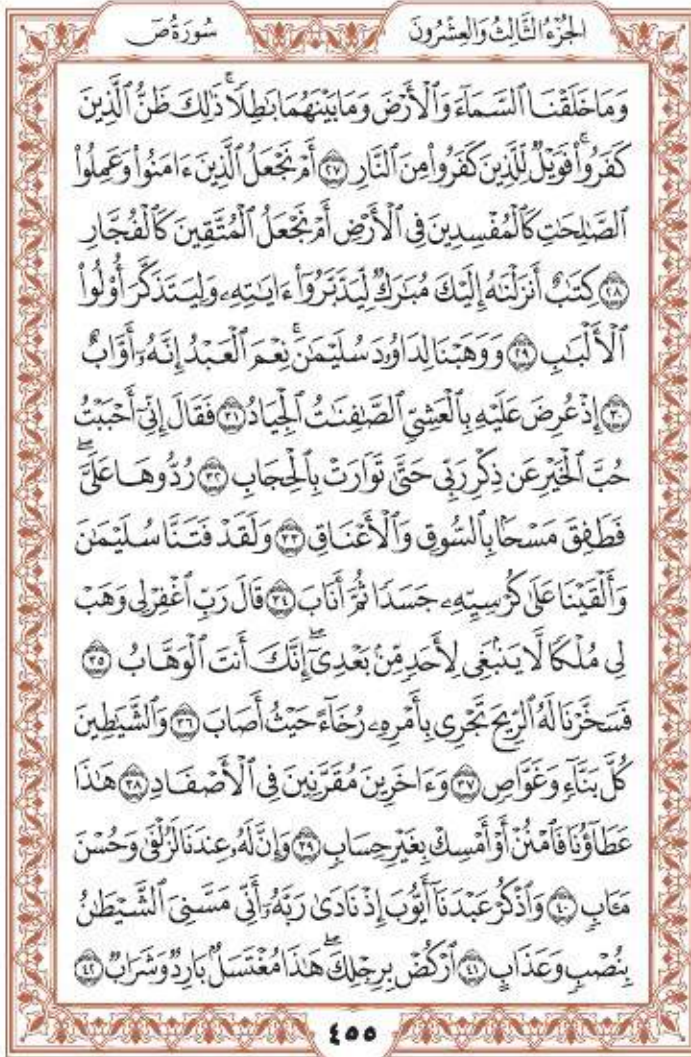 الجُزْءُ الثَّالِثُ وَالعِشْرُونَ
سُورَةُ صٓ
وَمَا خَلَقْنَا ٱلسَّمَآءَ وَٱلْأَرْضَ وَمَا بَيْنَهُمَا بَٰطِلًاۚ ذَٰلِكَ ظَنُّ ٱلَّذِينَ
كَفَرُوا۟ۚ فَوَيْلٌ لِّلَّذِينَ كَفَرُوا۟ مِنَ ٱلنَّارِ ٢٧ أَمْ نَجْعَلُ ٱلَّذِينَ ءَامَنُوا۟ وَعَمِلُوا۟
ٱلصَّٰلِحَٰتِ كَٱلْمُفْسِدِينَ فِى ٱلْأَرْضِ أَمْ نَجْعَلُ ٱلْمُتَّقِينَ كَٱلْفُجَّارِ
٢٨ كِتَٰبٌ أَنزَلْنَٰهُ إِلَيْكَ مُبَٰرَكٌ لِّيَدَّبَّرُوٓا۟ ءَايَٰتِهِۦ وَلِيَتَذَكَّرَ أُو۟لُوا۟
ٱلْأَلْبَٰبِ ٢٩ وَوَهَبْنَا لِدَاوُۥدَ سُلَيْمَٰنَۚ نِعْمَ ٱلْعَبْدُ إِنَّهُۥٓ أَوَّابٌ
٣٠ إِذْ عُرِضَ عَلَيْهِ بِٱلْعَشِىِّ ٱلصَّٰفِنَٰتُ ٱلْجِيَادُ ٣١ فَقَالَ إِنِّىٓ أَحْبَبْتُ
حُبَّ ٱلْخَيْرِ عَن ذِكْرِ رَبِّى حَتَّىٰ تَوَارَتْ بِٱلْحِجَابِ ٣٢ رُدُّوهَا عَلَىَّۖ
فَطَفِقَ مَسْحًۢا بِٱلسُّوقِ وَٱلْأَعْنَاقِ ٣٣ وَلَقَدْ فَتَنَّا سُلَيْمَٰنَ
وَأَلْقَيْنَا عَلَىٰ كُرْسِيِّهِۦ جَسَدًا ثُمَّ أَنَابَ ٣٤ قَالَ رَبِّ ٱغْفِرْ لِى وَهَبْ
لِى مُلْكًا لَّا يَنۢبَغِى لِأَحَدٍ مِّنۢ بَعْدِىٓۖ إِنَّكَ أَنتَ ٱلْوَهَّابُ ٣٥
فَسَخَّرْنَا لَهُ ٱلرِّيحَ تَجْرِى بِأَمْرِهِۦ رُخَآءً حَيْثُ أَصَابَ ٣٦ وَٱلشَّيَٰطِينَ
كُلَّ بَنَّآءٍ وَغَوَّاصٍ ٣٧ وَءَاخَرِينَ مُقَرَّنِينَ فِى ٱلْأَصْفَادِ ٣٨ هَٰذَا
عَطَآؤُنَا فَٱمْنُنْ أَوْ أَمْسِكْ بِغَيْرِ حِسَابٍ ٣٩ وَإِنَّ لَهُۥ عِندَنَا لَزُلْفَىٰ وَحُسْنَ
مَـَٔابٍ ٤٠ وَٱذْكُرْ عَبْدَنَآ أَيُّوبَ إِذْ نَادَىٰ رَبَّهُۥٓ أَنِّى مَسَّنِىَ ٱلشَّيْطَٰنُ
بِنُصْبٍ وَعَذَابٍ ٤١ ٱرْكُضْ بِرِجْلِكَۖ هَٰذَا مُغْتَسَلٌۢ بَارِدٌ وَشَرَابٌ ٤٢
٤٥٥